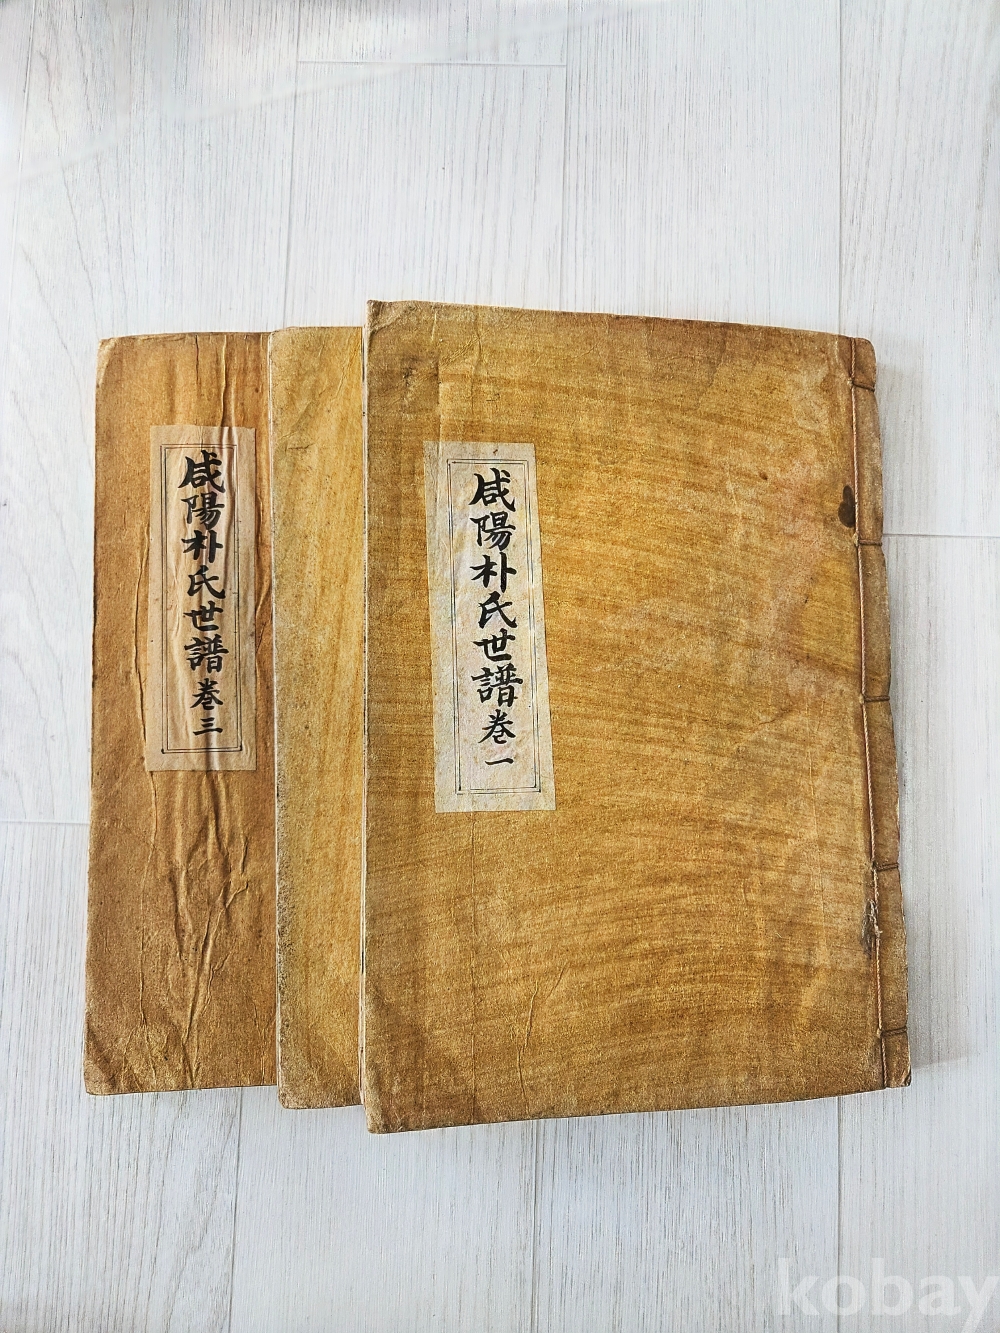 咸陽朴氏世譜 卷一
咸陽朴氏世譜 卷三
kobay